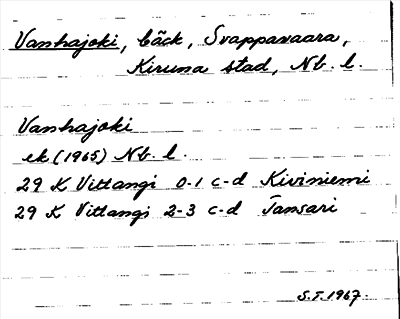 Vanhajoki, bäck, Svappavaara,
Kiruna stad, Nb. l.
Vanhajoki
ek (1965) Nb. l.
29 K Vittangi 0-1 c-d Kiviniemi
29 K Vittangi 2-3 c-d Tansari
S.T. 1967.